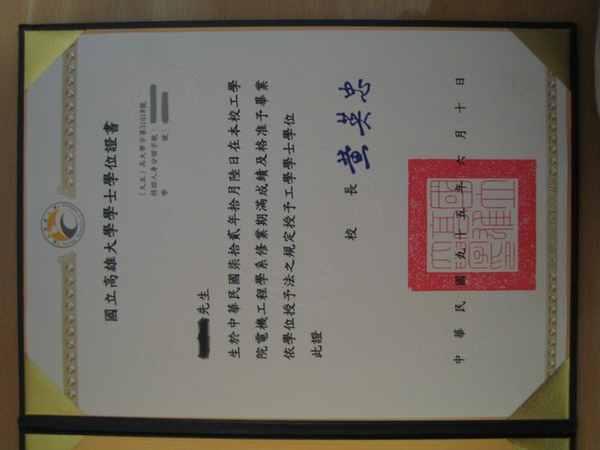 國立高雄大學學士學位證書
（九五）高大學字第51018號
持證人身分證字號：
學 號：
先生
生於中華民國柒拾貳年拾月陸日在本校工學
院電機工程學系修業期滿成績及格准予畢業
依學位授予法之規定授予工學學士學位
此證
校長 黃英忠
中華民國九十五年六月十日